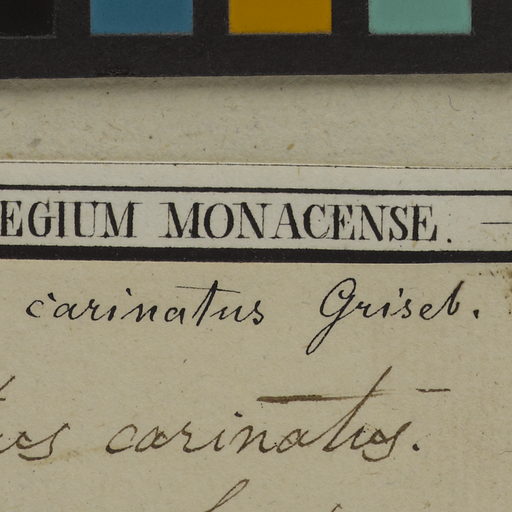 EGIUM MONACENSE. —
carinatus Griseb.
carinatus.